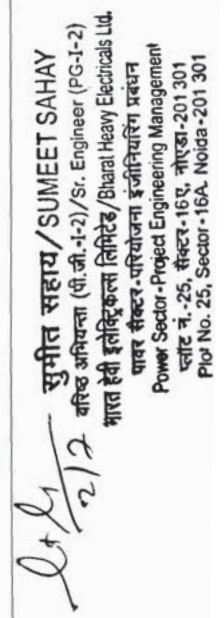 सुमीत सहाय/SUMEET SAHAY
वरिष्ठ अभियन्ता (पी.जी.-I-2)/Sr. Engineer (PG-I-2)
भारत हेवी इलेक्ट्रिकल्स लिमिटेड/Bharat Heavy Electricals Ltd.
पावर सैक्टर-परियोजना इंजीनियरिंग प्रबंधन
Power Sector-Project Engineering Management
प्लॉट नं.-25, सैक्टर-16ए, नोएडा-201 301
Plot No. 25, Sector-16A. Noida-201 301
2/2